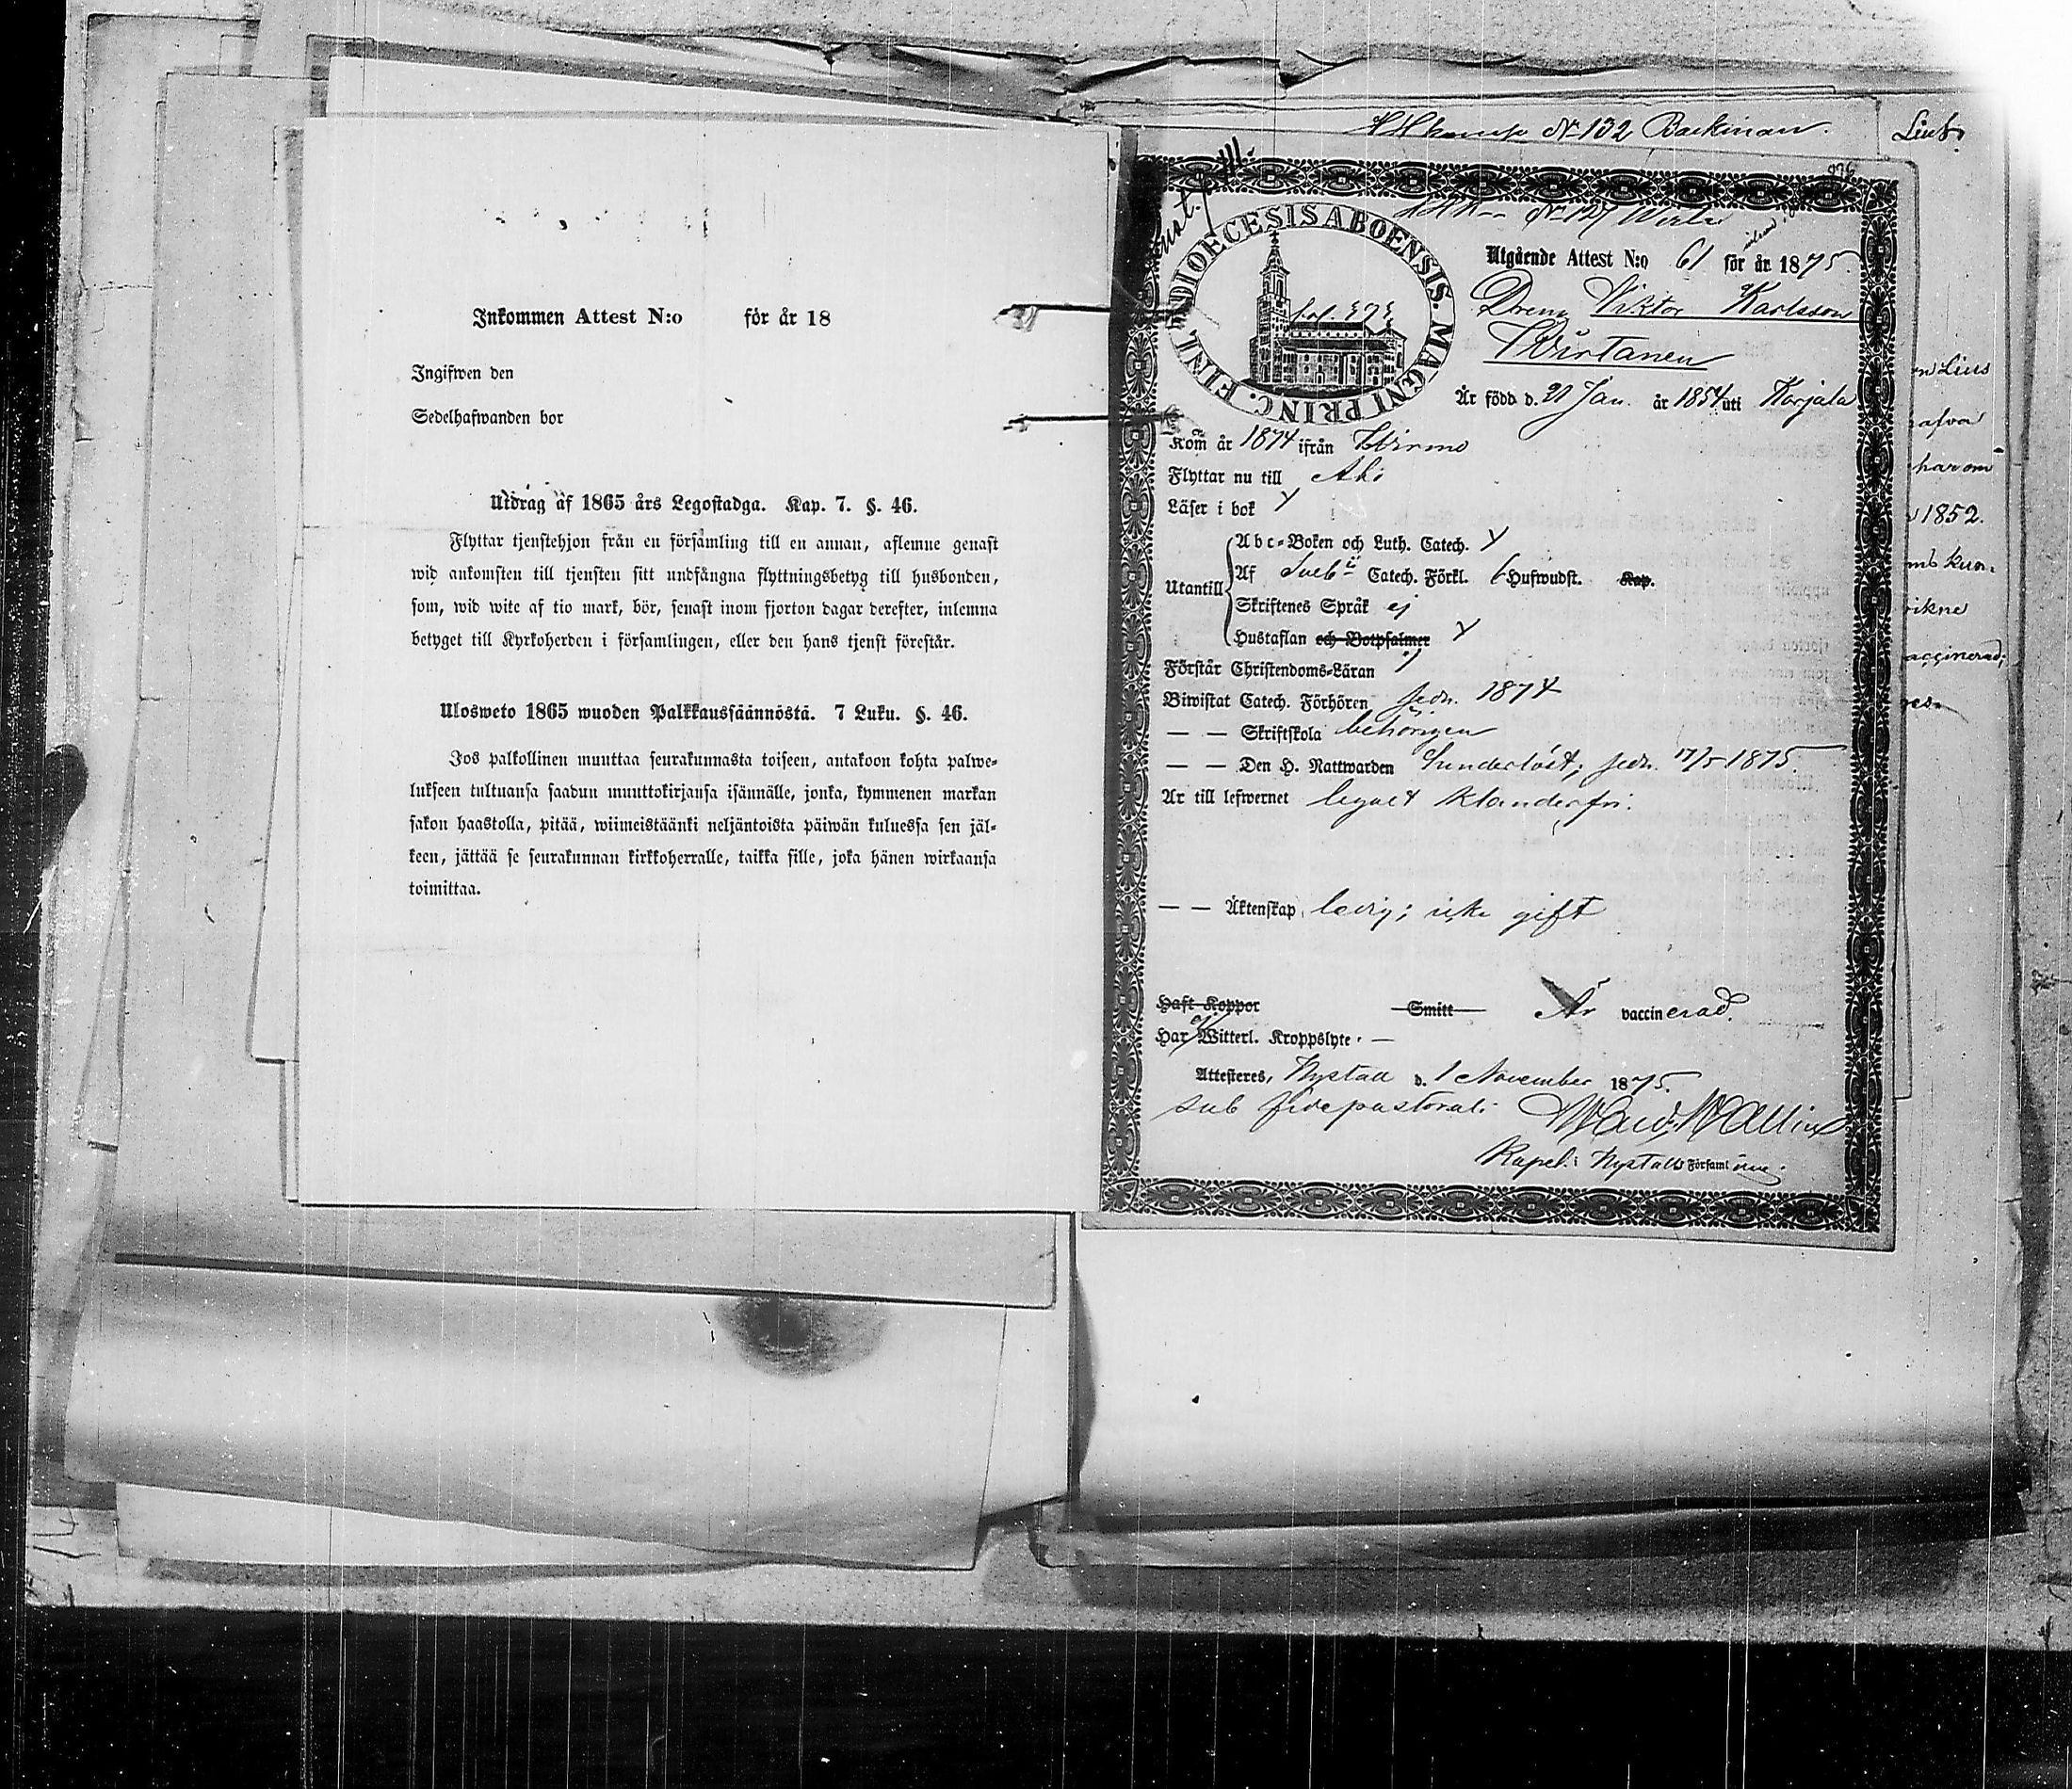 Inkommen Attest N:o för år 18
Ingifwen den
Sedelhafwanden bor
Utdrag af 1865 års Legostadga. Kap. 7. §. 46.
Flyttar tjenstehjon från en församling till en annan, aflemne genast
wid ankomsten till tjensten sitt undfångna flyttningsbetyg till husbonden,
som, wid wite af tio mark, bör, senast inom fjorton dagar derefter, inlemna
betyget till Kyrkoherden i församlingen, eller den hans tjenst förestår.
Ulosweto 1865 wuoden Palkkaussäännöstä. 7 Luku. §. 46.
Jos palkollinen muuttaa seurakunnasta toiseen, antakoon kohta palwe-
lukseen tultuansa saadun muuttokirjansa isännälle, jonka, kymmenen markan
sakon haastolla, pitää, wiimeistäänki neljäntoista päiwän kuluessa sen jäl-
keen, jättää se seurakunnan kirkkoherralle, taikka sille, joka hänen wirkaansa
toimittaa.
N:o 132 Backman.
N:o 127
DIOECESIS ABOENSIS. MAGNI PRINC. FINL.
Utgående Attest N:o 61 för år 1875.
Dreng Viktor Karlsson
Wirtanen
Är född d. 21 Jan. år 1854 uti Karjala
Kom år 1874 ifrån Wirmo
Flyttar nu till Åbo
Läser i bok
Utantill
Abc-Boken och Luth. Catech.
Af Sveb: Catech. Förkl. 6 Hufwudst. Kap.
Skriftenes Språk ej
Hustaflan och Botpsalmer
Förstår Christendoms-Läran
Biwistat Catech. Förhören sedn. 1874
— — Skriftskola behörigen
— — Den H. Nattwarden sedn. 17/5 1875.
Är till lefwernet klanderfri.
— — Äktenskap ledig; icke gift
Haft Koppor Smitt Är vaccinerad.
Har ej Witterl. Kroppslyte. —
Attesteres, Nystad d. 1 November 1875.
sub fide pastorali. Wallin
Kapel. i Nystads Församl
1852.